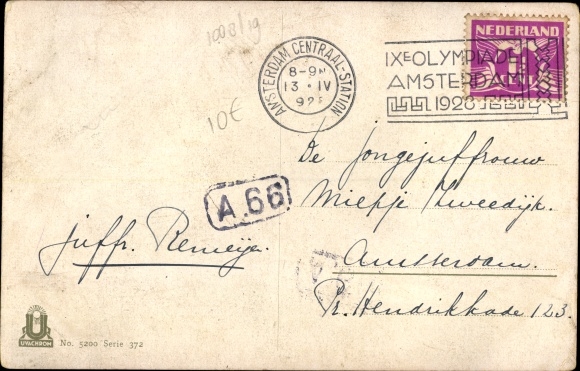 1908/19
10€
AMSTERDAM CENTRAAL-STATION
8-9N
13 · IV
192
IXE OLYMPIADE
AMSTERDAM
1928
NEDERLAND
A.66
De Jongejuffrouw
Miepje Tweedijk.
Amsterdam.
Pr. Hendrikkade 123.
juffr. Remeijer.
U
UVACHROM
No. 5200 Serie 372